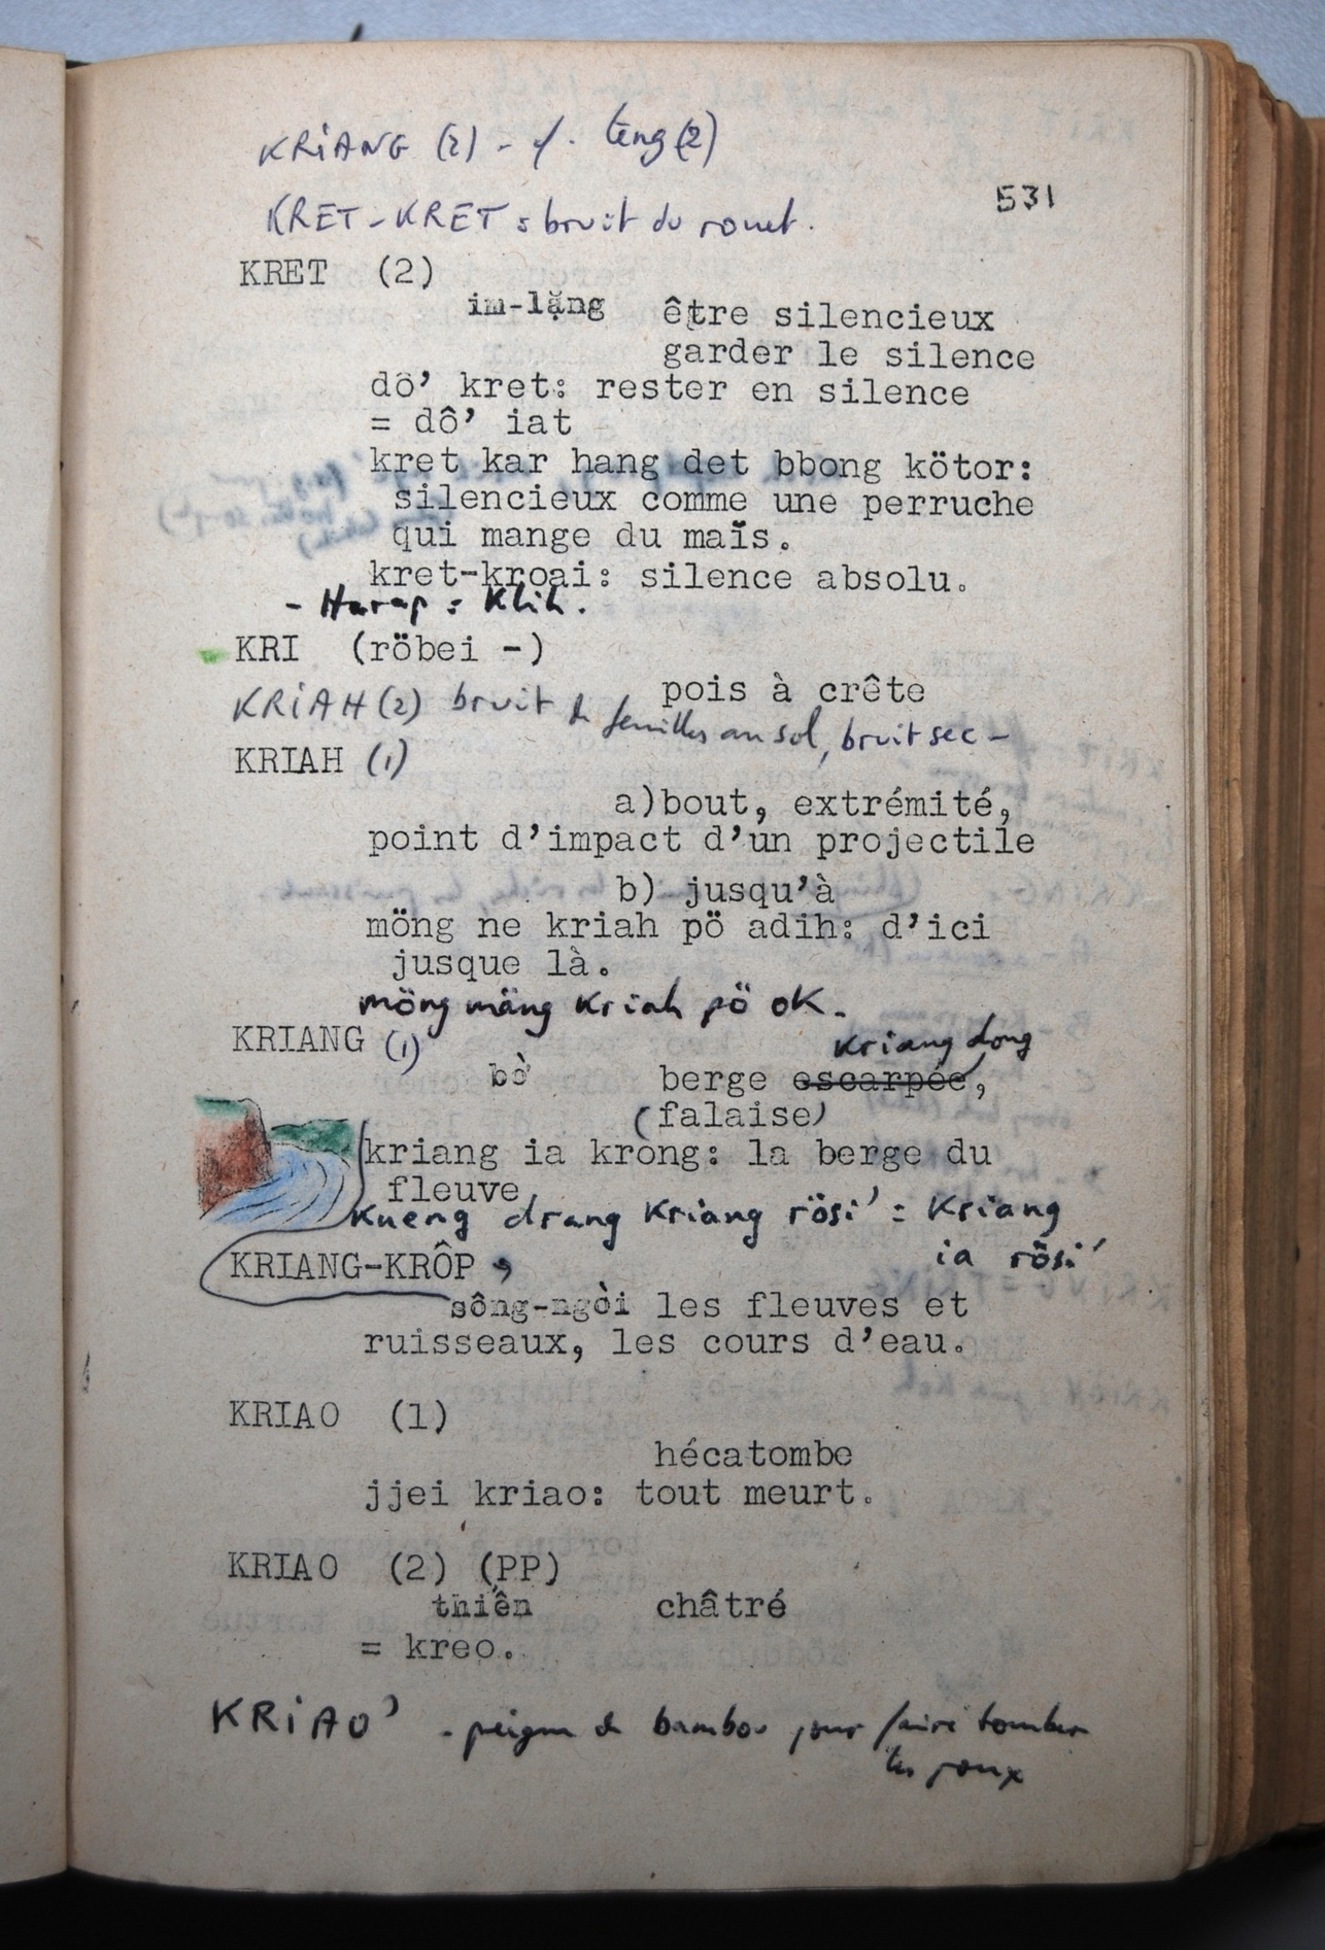 KRiANG (2) - f. tĕng (2)
531
KRET-KRET : bruit du rouet.
KRET (2)
im-lặng être silencieux
garder le silence
dô' kret: rester en silence
= dô' iat
kret kar hang det bbong kötor:
silencieux comme une perruche
qui mange du maïs.
kret-kroai: silence absolu.
- Harap : Klih.
KRI (röbei -)
pois à crête
KRiAH (2) bruit de feuilles au sol, bruit sec -
KRIAH (1)
a)bout, extrémité,
point d'impact d'un projectile
b) jusqu'à
möng ne kriah pö adih: d'ici
jusque là.
möng mäng kriah pö oK.
KRIANG (1)
kriang dong
bờ berge escarpée,
(falaise)
kriang ia krong: la berge du
fleuve
Kueng drang Kriang rösi' = Kriang
ia rösi'
KRIANG-KRÔP,
sông-ngòi les fleuves et
ruisseaux, les cours d'eau.
KRIAO (1)
hécatombe
jjei kriao: tout meurt.
KRIAO (2) (PP)
thiến châtré
= kreo.
KRiAO' - peigne de bambou pour faire tomber
les poux